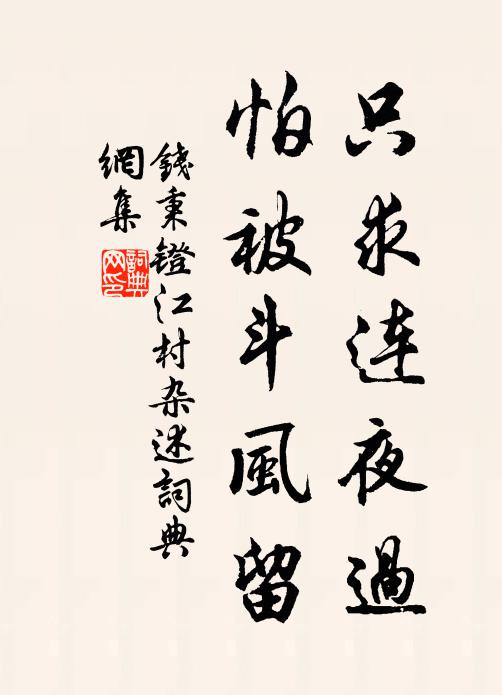 只求連夜過
怕被斗風留
錢秉鐙江村杂述詞典
網集
詞典
网印